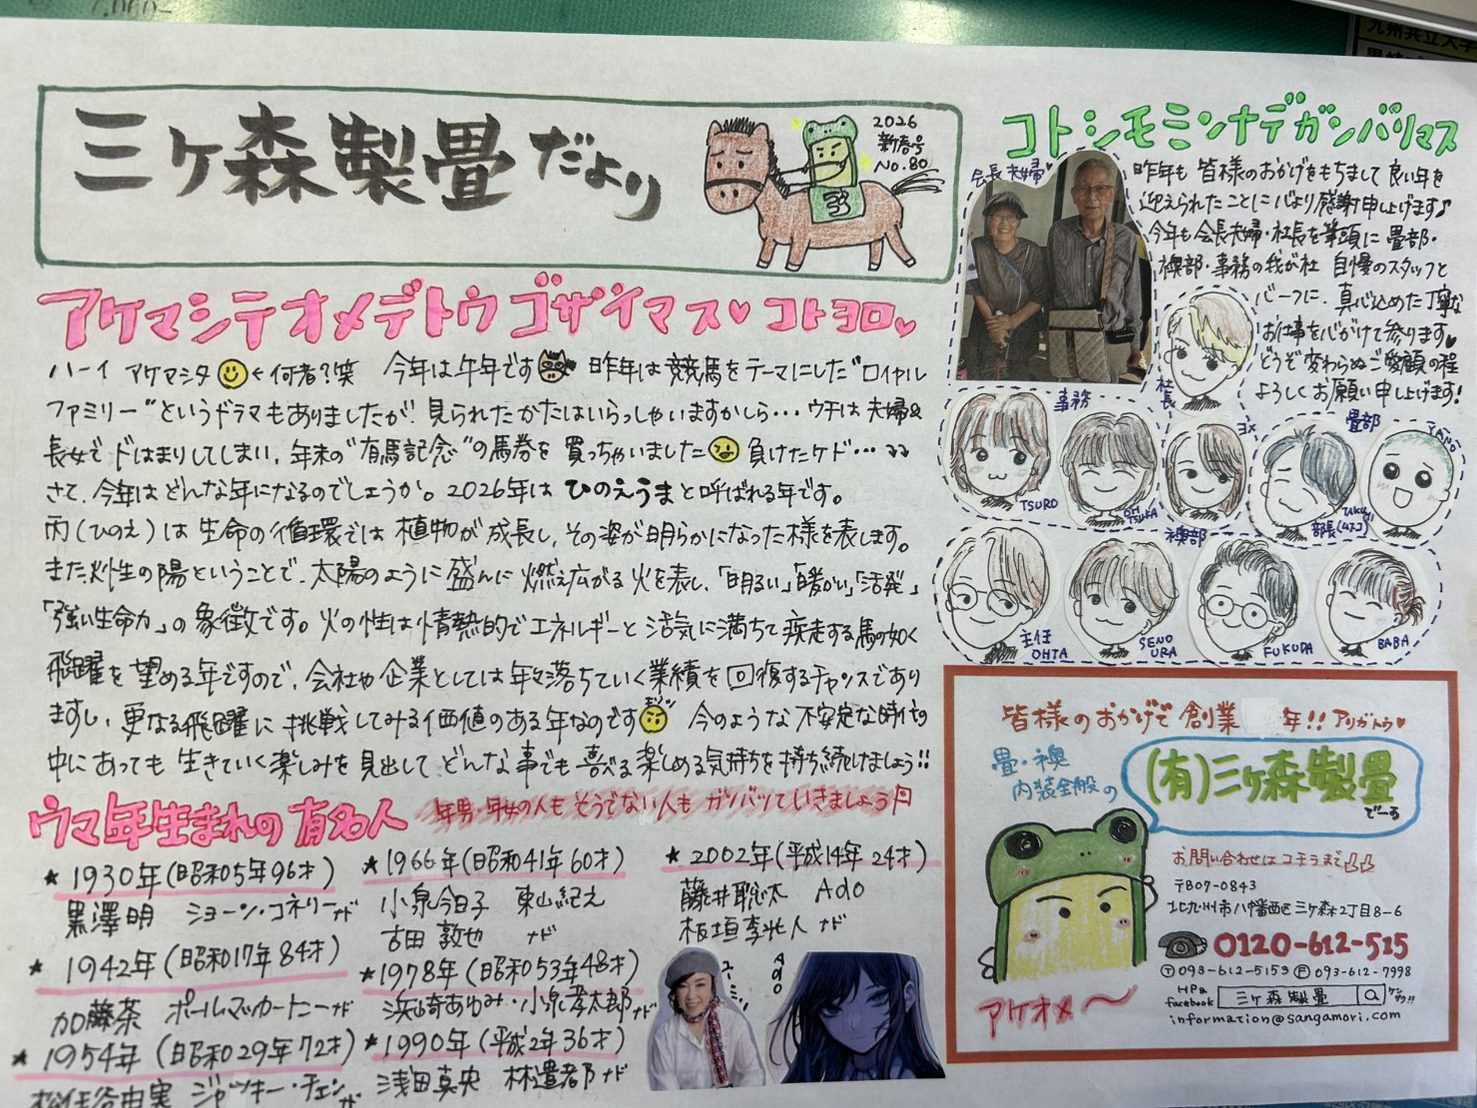 7,060-
九州共立大学
三ケ森製畳だより
2026
新春号
No.80
アケマシテオメデトウゴザイマス♡コトヨロ♡
ハーイ アケマシタ ←何者?笑 今年は午年です 昨年は競馬をテーマにした"ロイヤル
ファミリー"というドラマもありましたが! 見られたかたはいらっしゃいますかしら… ウチは夫婦&
長女でドはまりしてしまい、年末の"有馬記念"の馬券を買っちゃいました 負けたケド…
さて、今年はどんな年になるのでしょうか。2026年はひのえうまと呼ばれる年です。
丙(ひのえ)は生命の循環では植物が成長し、その姿が明らかになった様を表します。
また火性の陽ということで、太陽のように盛んに燃え広がる火を表し、「明るい」「暖かい」「活発」
「強い生命力」の象徴です。火の性は情熱的でエネルギーと活気に満ちて疾走する馬の如く
飛躍を望める年ですので、会社や企業としては年々落ちていく業績を回復するチャンスであり
ますし、更なる飛躍に挑戦してみる価値のある年なのです 今のような不安定な時代の
中にあっても生きていく楽しみを見出してどんな事でも喜べる楽しめる気持ちを持ち続けましょう!!
ウマ年生まれの有名人
年男・年女の人もそうでない人もガンバッていきましょう
★1930年(昭和5年96才)
黒澤明 ショーン・コネリーナド
★1942年(昭和17年84才)
加藤茶 ポールマッカートニーナド
★1954年(昭和29年72才)
松任谷由実 ジャッキー・チェンナド
★1966年(昭和41年60才)
小泉今日子 東山紀之
古田敦也 ナド
★1978年(昭和53年48才)
浜崎あゆみ・小泉孝太郎ナド
★1990年(平成2年36才)
浅田真央 林遣都ナド
★2002年(平成14年24才)
藤井聡太 Ado
板垣李光人 ナド
ユーミン
Ado
コトシモミンナデガンバリマス
会長夫婦
昨年も皆様のおかげをもちまして良い年を
迎えられたことに心より感謝申し上げます♪
今年も会長夫婦・社長を筆頭に畳部・
襖部・事務の我が社 自慢のスタッフと
心一つに、真心込めた丁寧な
お仕事を心がけて参ります♥
どうぞ変わらぬご愛顧の程
よろしくお願い申し上げます!
社長
事務
TSURO
OHTSUKA
ヨメ
畳部
部長(ムスコ)
TAKUMI
襖部
主任
OHTA
SENOURA
FUKUDA
BABA
皆様のおかげで創業 年!! アリガトウ♥
畳・襖
内装全般の
(有)三ケ森製畳
でーる
お問い合わせはコチラまで
〒807-0843
北九州市八幡西区三ケ森2丁目8-6
0120-612-515
Ⓣ093-612-5153 Ⓕ093-612-7998
HP&
facebook
三ケ森製畳
ケンサク!!
information@sangamori.com
アケオメ〜